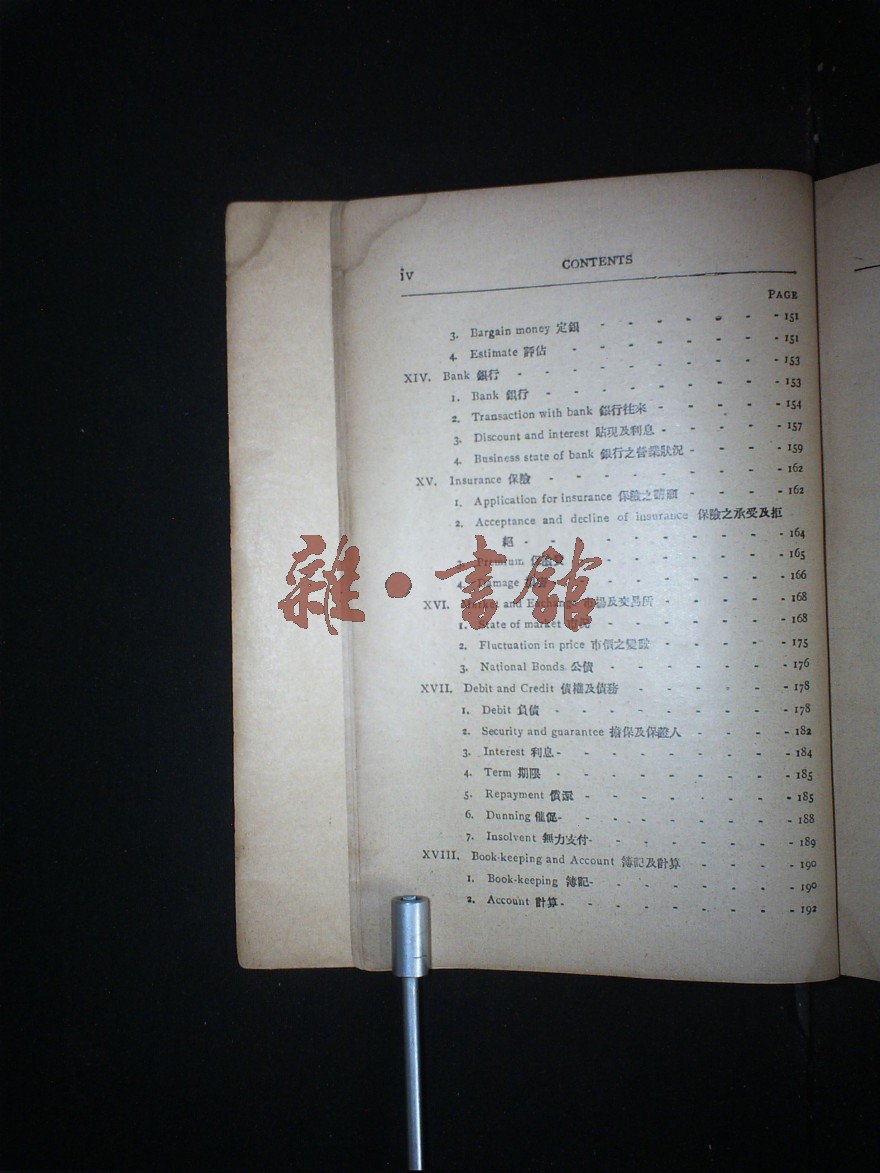 iv CONTENTS
PAGE
3. Bargain money 定銀 - - - - - - - 151
4. Estimate 評估 - - - - - - - - 151
XIV. Bank 銀行 - - - - - - - - - 153
1. Bank 銀行 - - - - - - - - 153
2. Transaction with bank 銀行往來 - - - - - 154
3. Discount and interest 貼現及利息 - - - - - 157
4. Business state of bank 銀行之營業狀況 - - - - 159
XV. Insurance 保險 - - - - - - - - 162
1. Application for insurance 保險之 - - - - 162
2. Acceptance and decline of insurance 保險之承受及拒
絕 - - - - - - - - - 164
3. Premium 保險費 - - - - - - - 165
4. Damage - - - - - - - - 166
XVI. Market and Exchange 市場及交易所 - - - - - 168
1. State of market 市況 - - - - - - - 168
2. Fluctuation in price 市價之變動 - - - - - 175
3. National Bonds 公債 - - - - - - - 176
XVII. Debit and Credit 債權及債務 - - - - - - 178
1. Debit 負債 - - - - - - - - - 178
2. Security and guarantee 擔保及保證人 - - - - 182
3. Interest 利息 - - - - - - - - 184
4. Term 期限 - - - - - - - - - 185
5. Repayment 償還 - - - - - - - - 185
6. Dunning 催促 - - - - - - - - 188
7. Insolvent 無力支付 - - - - - - - 189
XVIII. Book-keeping and Account 簿記及計算 - - - - 190
1. Book-keeping 簿記 - - - - - - - 190
2. Account 計算 - - - - - - - - 192
雜·書館